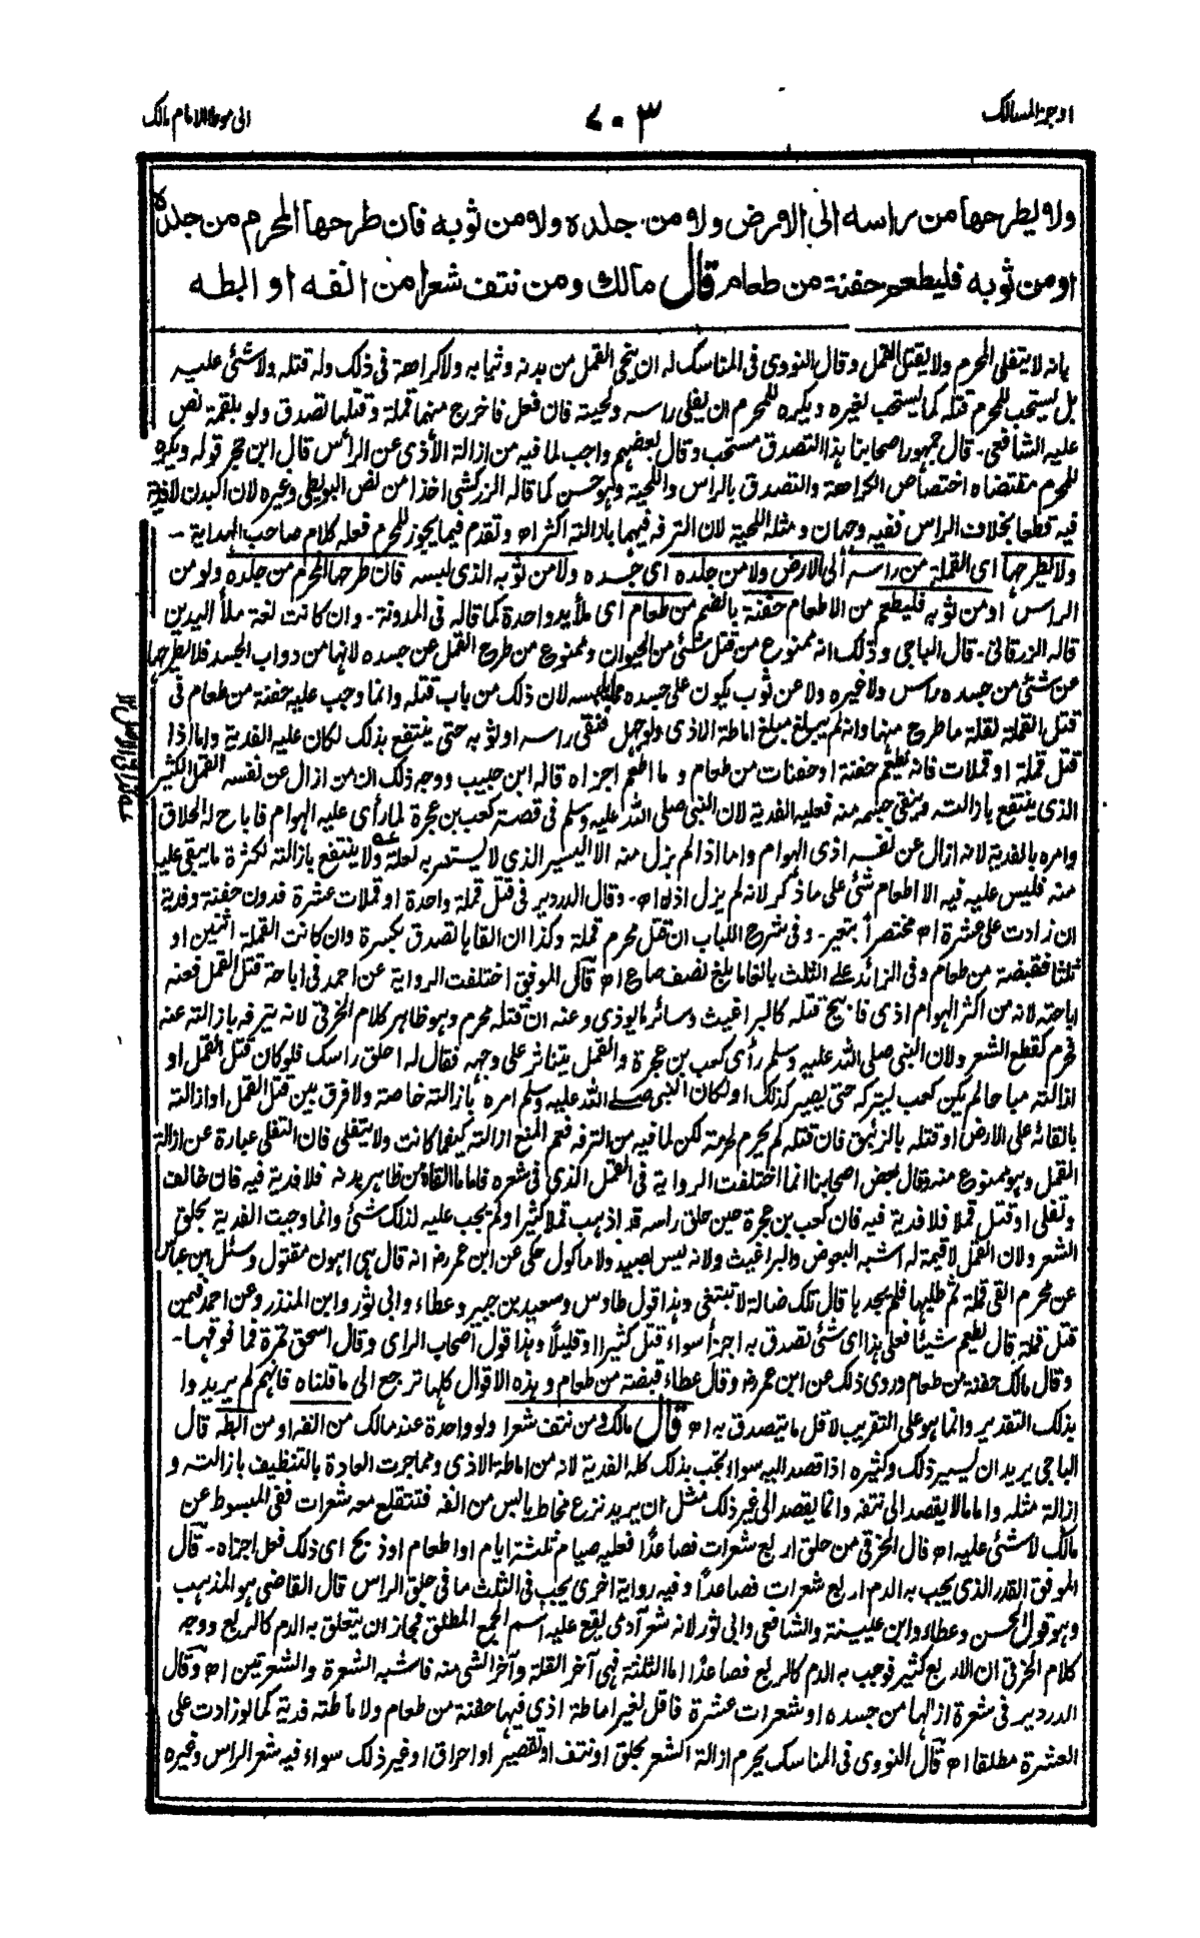 اوجز المسالك
٧٠٣
الى موطا الامام مالك
ولا يطرحها من راسه الى الارض ولا من جلده ولا من ثوبه فان طرحها المحرم من جلده
او من ثوبه فليطعم حفنة من طعام قال مالك ومن نتف شعرا من انفه او ابطه
بانه لا يتفلى المحرم ولا يقتل القمل وقال النووى فى المناسك له ان ينحى القمل من بدنه وثيابه ولا كراهة فى ذلك وله قتله ولا شئ عليه
بل يستحب للمحرم قتله كما يستحب لغيره ويكره للمحرم ان يفلى راسه ولحيته فان فعل فاخرج منهما قملة وقتلها تصدق ولو بلقمة نص
عليه الشافعى - قال جمهور اصحابنا هذا التصدق مستحب وقال بعضهم واجب لما فيه من ازالة الأذى عن الرأس قال ابن حجر قوله ويكره
للمحرم مقتضاه اختصاص الكراهة والتصدق بالراس واللحية وهو حسن كما قاله الزركشى اخذا من نص البويطى وغيره لان البدن لا فدية
فيه قطعا بخلاف الراس ففيه وجهان ومثله اللحية لان الترفه فيهما بازالته اكثر اه وتقدم فيما يجوز للمحرم فعله كلام صاحب الهداية -
ولا يطرحها اى القملة من راسه الى الارض ولا من جلده اى جسده ولا من ثوبه الذى لبسه فان طرحها المحرم من جلده ولو من
الراس او من ثوبه فليطعم من الاطعام حفنة بالضم من طعام اى ملأ يد واحدة كما قاله فى المدونة - وان كانت لغة ملأ اليدين
قاله الزرقانى - قال الباجى وذلك انه ممنوع من قتل شئ من الحيوان وممنوع من طرح القمل عن جسده لانها من دواب الجسد فلا يطرحها
عن شئ من جسده راس ولا غيره ولا عن ثوب يكون على جسده لان ذلك من باب قتله وانما وجب عليه حفنة من طعام فى
قتل القملة لقلة ما طرح منها وانه لم يبلغ مبلغ اماطة الاذى ولو جهل فنقى راسه او ثوبه حتى ينتفع بذلك لكان عليه الفدية واما اذا
قتل قملة او قملات فانه يطعم حفنة او حفنات من طعام وما اطعم اجزاه قاله ابن حبيب ووجه ذلك ان من ازال عن نفسه القمل الكثير
الذى ينتفع بازالته وينقى جسمه منه فعليه الفدية لان النبى صلى الله عليه وسلم فى قصة كعب بن عجرة لما رأى عليه الهوام فاباح له الحلاق
وامره بالفدية لانه ازال عن نفسه اذى الهوام واما اذا لم يزل منه الا اليسير الذى لا يستضر به لقلته ولا ينتفع بازالته لكثرة ما يبقى عليه
منه فليس عليه فيه الا اطعام شئ على ما ذكر لانه لم يزل اذاه اه - وقال الدردير فى قتل قملة واحدة او قملات عشرة فدون حفنة وفدية
ان زادت على عشرة اه مختصرا بتغير - وفى شرح اللباب ان قتل محرم قملة وكذا ان القاها تصدق بكسرة وان كانت القملة اثنين او
ثلثا فقبضة من طعام وفى الزائد على الثلث بالغا ما بلغ نصف صاع اه قال الموفق اختلفت الرواية عن احمد فى اباحة قتل القمل فعنه
اباحته لانه من اكثر الهوام اذى فابيح قتله كالبراغيث وسائر ما يوذى وعنه ان قتله محرم وهو ظاهر كلام الخرقى لانه يترفه بازالته عنه
فحرم كقطع الشعر ولان النبى صلى الله عليه وسلم رأى كعب بن عجرة والقمل يتناثر على وجهه فقال له احلق راسك فلو كان قتل القمل او
ازالته مباحا لم يكن كعب ليتركه حتى يصير كذلك او لكان النبى صلى الله عليه وسلم امره بازالته خاصة ولا فرق بين قتل القمل او ازالته
بالقائه على الارض او قتله بالزئبق فان قتله لم يحرم لحرمته لكن لما فيه من الترفه فعم المنع ازالته كيفما كانت ولا يتفلى فان التفلى عبارة عن ازالة
القمل وهو ممنوع منه وقال بعض اصحابنا انما اختلفت الرواية فى القمل الذى فى شعره فاما ما القاه من ظاهر بدنه فلا فدية فيه فان خالف
وتفلى او قتل قملا فلا فدية فيه فان كعب بن عجرة حين حلق راسه قد اذهب قملا كثيرا ولم يجب عليه لذلك شئ وانما وجبت الفدية بحلق
الشعر ولان القمل لا قيمة له اشبه البعوض والبراغيث ولانه ليس بصيد ولا ماكول حكى عن ابن عمر رض انه قال هى اهون مقتول وسئل ابن عباس
عن محرم القى قملة ثم طلبها فلم يجدها قال تلك ضالة لا تبتغى وهذا قول طاوس وسعيد بن جبير وعطاء وابى ثور وابن المنذر وعن احمد فيمن
قتل قملة قال يطعم شيئا فعلى هذا اى شئ تصدق به اجزأ سواء قتل كثيرا او قليلا وهذا قول اصحاب الراى وقال اسحق تمرة فما فوقها -
وقال مالك حفنة من طعام وروى ذلك عن ابن عمر رض وقال عطاء قبضة من طعام وهذه الاقوال كلها ترجع الى ما قلناه فانهم لم يريدوا
بذلك التقدير وانما هو على التقريب لاقل ما يتصدق به اه قال مالك ومن نتف شعرا ولو واحدة عند مالك من انفه او من ابطه قال
الباجى يريد ان يسير ذلك وكثيره اذا قصد اليه سواء تجب بذلك كله الفدية لانه من اماطة الاذى ومما جرت العادة بالتنظيف بازالته و
ازالة مثله واما ما لا يقصد الى نتفه وانما يقصد الى غير ذلك مثل ان يريد نزع مخاط يابس من انفه فتنقلع معه شعرات ففى المبسوط عن
مالك لا شئ عليه اه قال الخرقى من حلق اربع شعرات فصاعدًا فعليه صيام ثلثة ايام او اطعام او ذبح اى ذلك فعل اجزاه - قال
الموفق القدر الذى يجب به الدم اربع شعرات فصاعدًا وفيه رواية اخرى يجب فى الثلث ما فى حلق الراس قال القاضى هو المذهب
وهو قول الحسن وعطاء وابن عيينة والشافعى وابى ثور لانه شعر آدمى يقع عليه اسم الجمع المطلق فجاز ان يتعلق به الدم كالربع ووجه
كلام الخرقى ان الاربع كثير فوجب به الدم كالربع فصاعدًا اما الثلثة فهى آخر القلة وآخر الشى منه فاشبه الشعرة والشعرتين اه وقال
الدردير فى شعرة ازالها من جسده او شعرات عشرة فاقل لغير اماطة اذى فيها حفنة من طعام ولاماطته فدية كما لو زادت على
العشرة مطلقا اه قال النووى فى المناسك يحرم ازالة الشعر بحلق او نتف او تقصير او احراق او غير ذلك سواء فيه شعر الراس وغيره